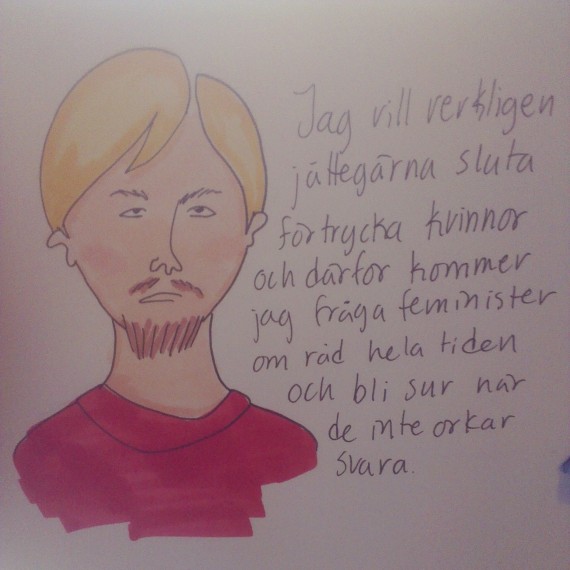 Jag vill verkligen
jättegärna sluta
förtrycka kvinnor
och därför kommer
jag fråga feminister
om råd hela tiden
och bli sur när
de inte orkar
svara.